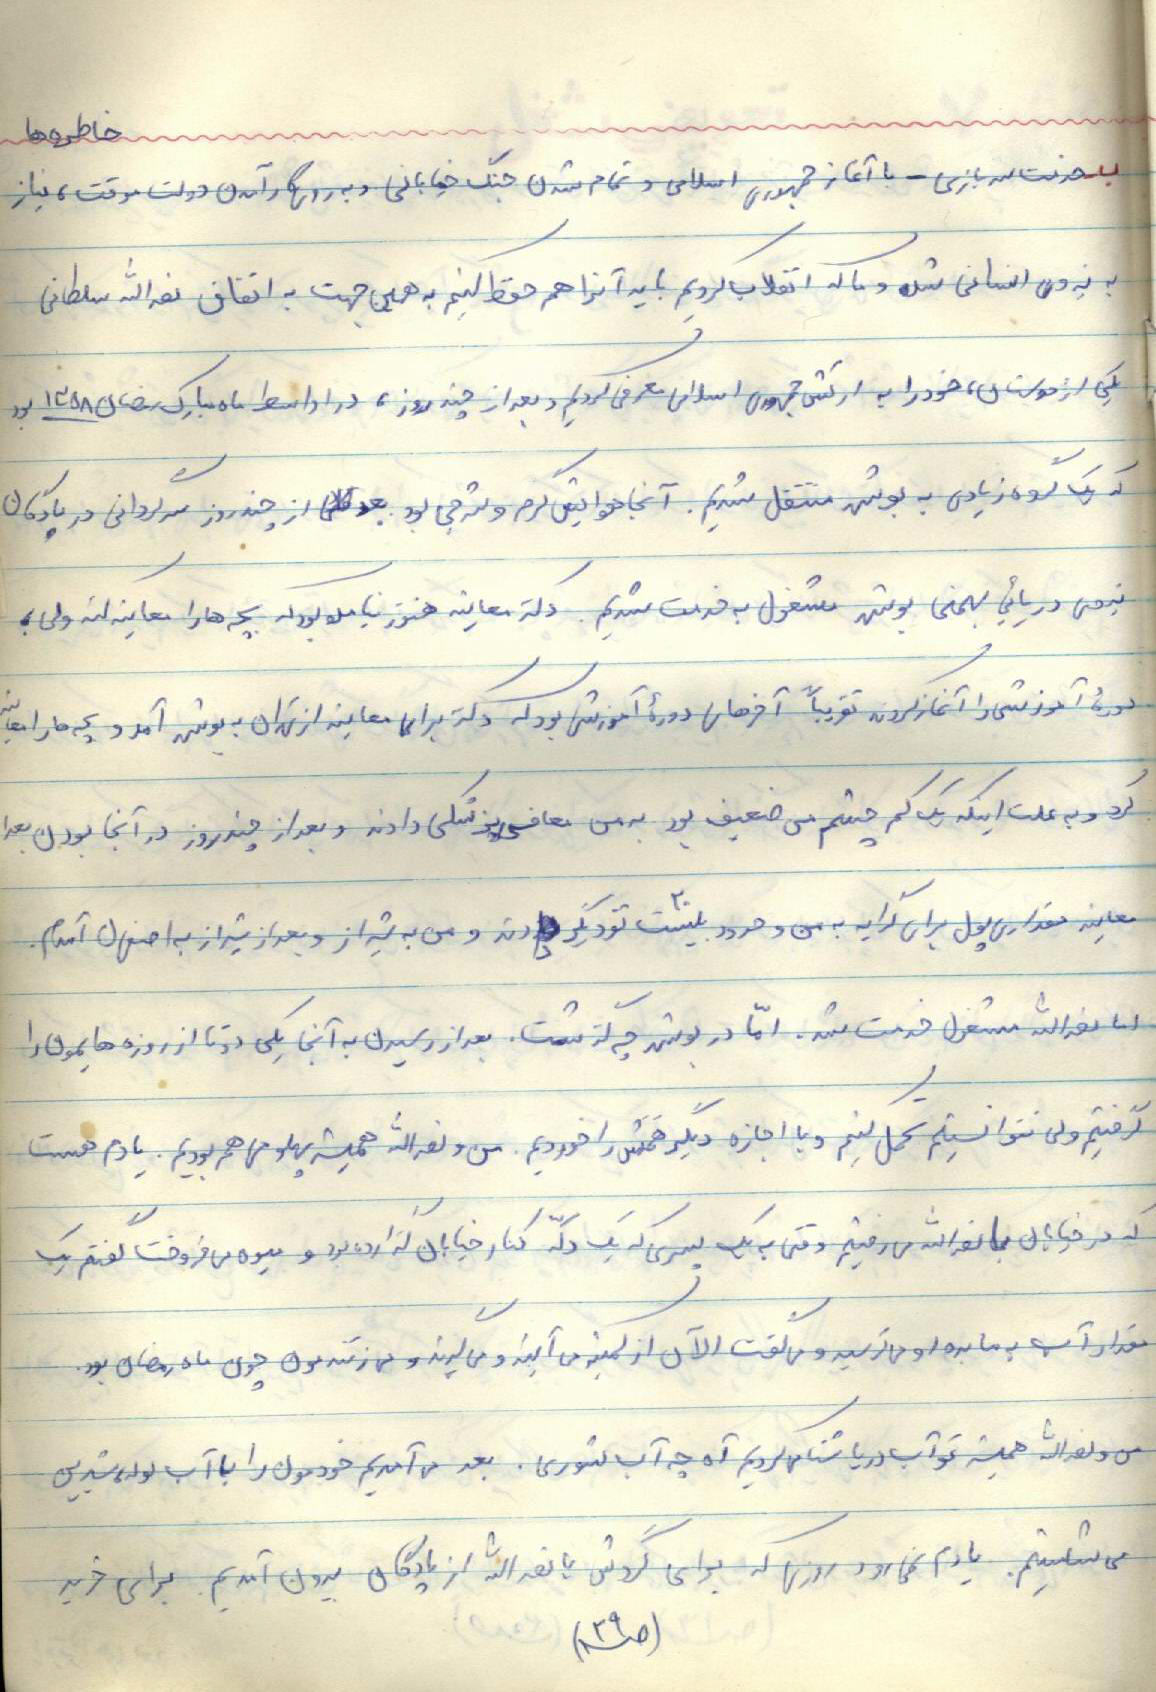 خاطره‌ها
خدمت سربازی - با آغاز جمهوری اسلامی و تمام شدن جنگ خیابانی و به روی کار آمدن دولت موقت، نیاز
به نیروی انسانی شد و ما که انقلاب کردیم باید آنرا هم حفظ کنیم به همین جهت به اتفاق نصرالله سلطانی
یکی از دوستان، خود را به ارتش جمهوری اسلامی معرفی کردیم و بعد از چند روز، در اواسط ماه مبارک رمضان ۱۳۵۸ بود
که یک گروه زیادی به بوشهر منتقل شدیم. آنجا هوایش گرم و شرجی بود. بعد از چند روز سرگردانی در پادگان
نیروی دریائی بهمنی بوشهر مشغول به خدمت شدیم. دکتر معاینه هنوز نیامده بود که بچه ها را معاینه کند ولی،
دورهٔ آموزشی را آغاز کردند تقریباً آخرهای دورهٔ آموزشی بود که دکتر برای معاینه از تهران به بوشهر آمد و بچه ها را معاینه
کرد و به علت اینکه یک کم چشم من ضعیف بود به من معافی پزشکی دادند و بعد از چند روز در آنجا بودن بعد از
معاینه مقداری پول برای کرایه به من و حدود بیست نفر دیگر دادند و من به شیراز و بعد از شیراز به اصفهان آمدم.
اما نصرالله مشغول خدمت شد. امّا در بوشهر چه گذشت. بعد از رسیدن به آنجا یکی دوتا از روزه هایمون را
گرفتیم ولی نتوانستیم تحمل کنیم و با اجازه دیگر همه‌ش را خوردیم. من و نصرالله همیشه پهلوی هم بودیم. یادم هست
که در خیابان با نصرالله می رفتیم وقتی به یک پسری که یک دکّه کنار خیابان گذارده بود و میوه می فروخت گفتم یک
مقدار آب به ما بده او می ترسید و می گفت الآن از کمیته می آیند و می گیرند و می زنندمون چون ماه رمضان بود.
من و نصرالله همیشه تو آب دریا شنا می کردیم آه چه آب شوری. بعد می آمدیم خودمون را با آب لوله شیرین
می شستیم. یادم نمی رود روزی که برای گردش با نصرالله از پادگان بیرون آمدیم. برای خرید
(ص ۳۹)